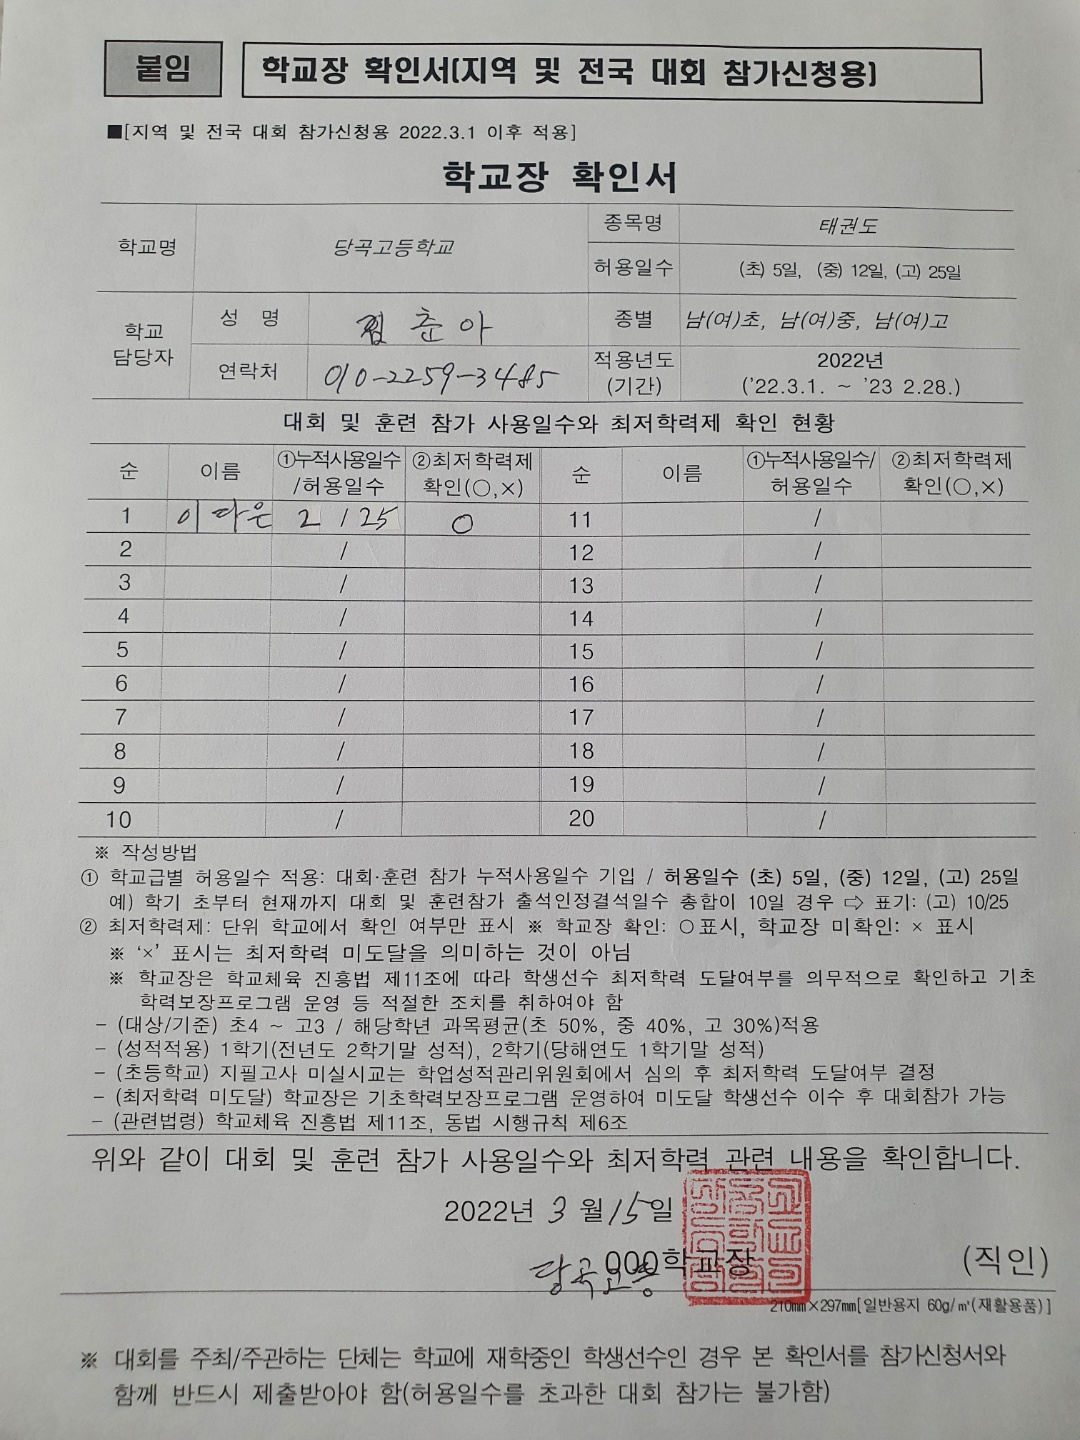 붙임
학교장 확인서(지역 및 전국 대회 참가신청용)
■[지역 및 전국 대회 참가신청용 2022.3.1 이후 적용]
학교장 확인서
학교명 당곡고등학교 종목명 태권도
허용일수 (초) 5일, (중) 12일, (고) 25일
학교 담당자 성 명 춘아 종별 남(여)초, 남(여)중, 남(여)고
연락처 010-2259-3485 적용년도 (기간) 2022년 ('22.3.1. ~ '23 2.28.)
대회 및 훈련 참가 사용일수와 최저학력제 확인 현황
순 이름 ①누적사용일수/허용일수 ②최저학력제 확인(○,×) 순 이름 ①누적사용일수/허용일수 ②최저학력제 확인(○,×)
1 이다은 2 / 25 ○ 11 /
2 / 12 /
3 / 13 /
4 / 14 /
5 / 15 /
6 / 16 /
7 / 17 /
8 / 18 /
9 / 19 /
10 / 20 /
※ 작성방법
① 학교급별 허용일수 적용: 대회·훈련 참가 누적사용일수 기입 / 허용일수 (초) 5일, (중) 12일, (고) 25일
예) 학기 초부터 현재까지 대회 및 훈련참가 출석인정결석일수 총합이 10일 경우 ⇨ 표기: (고) 10/25
② 최저학력제: 단위 학교에서 확인 여부만 표시 ※ 학교장 확인: ○표시, 학교장 미확인: × 표시
※ '×' 표시는 최저학력 미도달을 의미하는 것이 아님
※ 학교장은 학교체육 진흥법 제11조에 따라 학생선수 최저학력 도달여부를 의무적으로 확인하고 기초
학력보장프로그램 운영 등 적절한 조치를 취하여야 함
- (대상/기준) 초4 ~ 고3 / 해당학년 과목평균(초 50%, 중 40%, 고 30%)적용
- (성적적용) 1학기(전년도 2학기말 성적), 2학기(당해연도 1학기말 성적)
- (초등학교) 지필고사 미실시교는 학업성적관리위원회에서 심의 후 최저학력 도달여부 결정
- (최저학력 미도달) 학교장은 기초학력보장프로그램 운영하여 미도달 학생선수 이수 후 대회참가 가능
- (관련법령) 학교체육 진흥법 제11조, 동법 시행규칙 제6조
위와 같이 대회 및 훈련 참가 사용일수와 최저학력 관련 내용을 확인합니다.
2022년 3 월 15일
당곡고등 000학교장 (직인)
210㎜×297㎜[일반용지 60g/㎡(재활용품)]
※ 대회를 주최/주관하는 단체는 학교에 재학중인 학생선수인 경우 본 확인서를 참가신청서와
함께 반드시 제출받아야 함(허용일수를 초과한 대회 참가는 불가함)